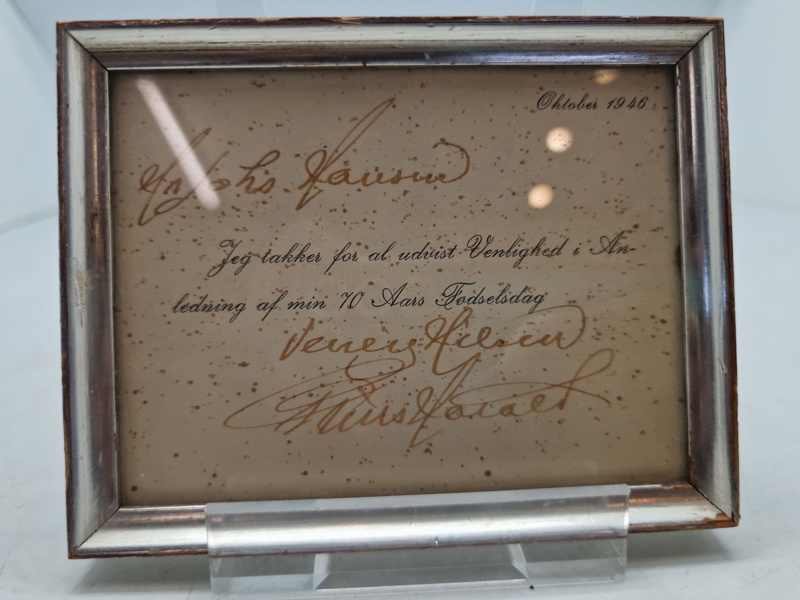 Oktober 1946
Hr. Johs. Hansen
Jeg takker for al udvist Venlighed i An-
ledning af min 70 Aars Fødselsdag
Hilsen
Harald